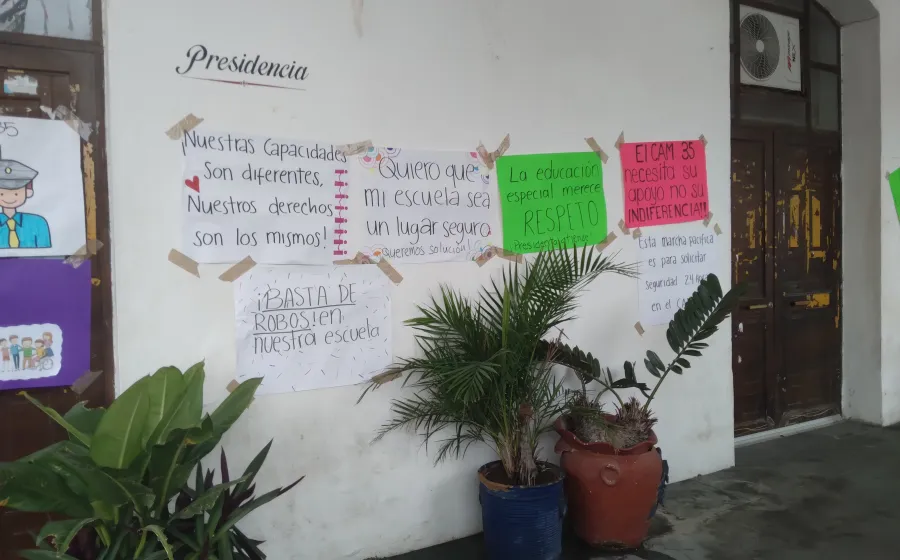 Presidencia
35
Nuestras Capacidades
Son diferentes,
Nuestros derechos
son los mismos!
Quiero que
mi escuela sea
un lugar seguro
queremos solución!
La educación
especial merece
RESPETO
El CAM 35
necesita su
apoyo no su
INDIFERENCIA!!
Esta marcha pacifica
es para solicitar
seguridad 24
en el
¡BASTA DE
ROBOS! en
nuestra escuela